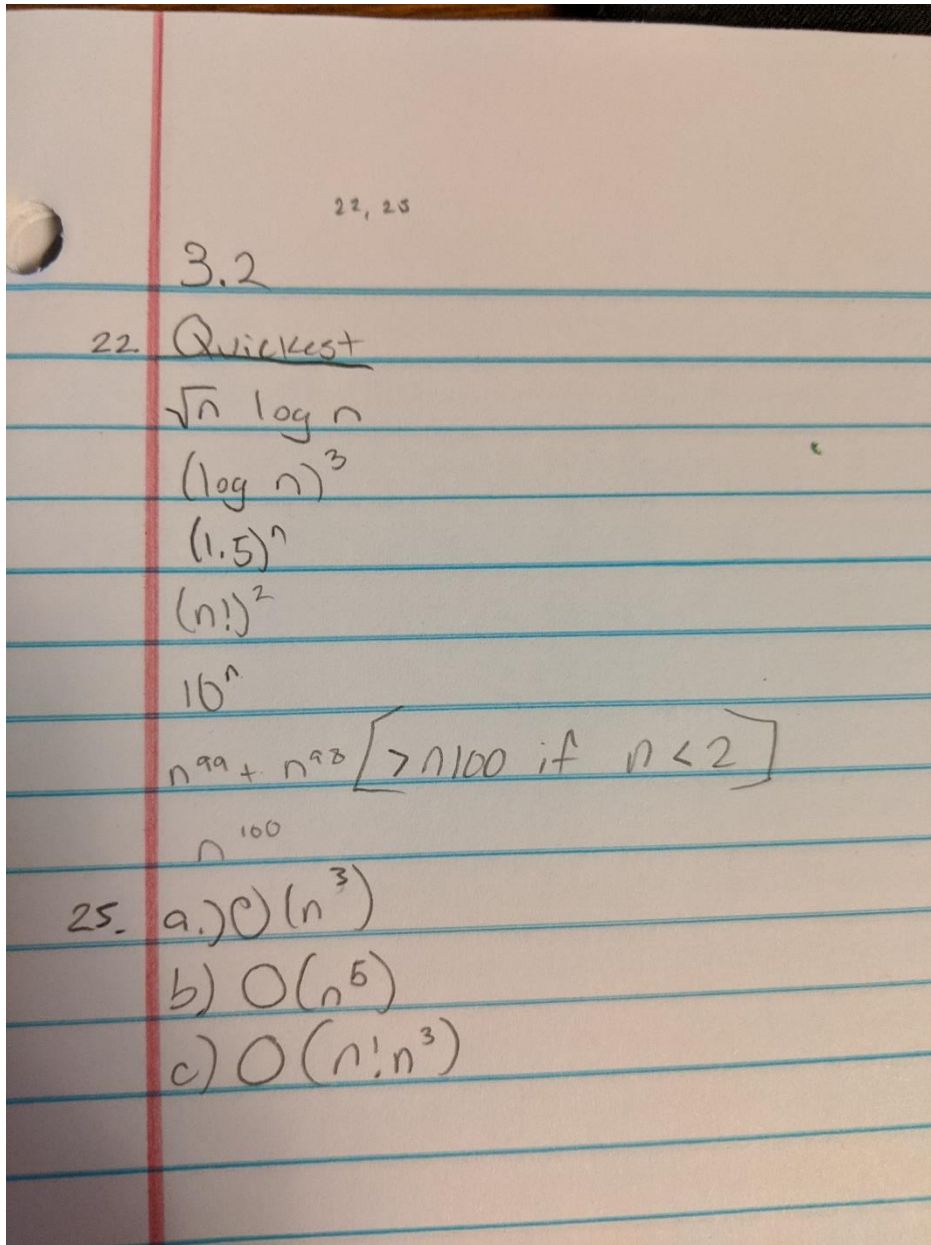 22, 25
3.2
22. Quickest
√n log n
(log n)³
(1.5)ⁿ
(n!)²
10ⁿ
n⁹⁹ + n⁹⁸ [>n100 if n<2]
n¹⁰⁰
25. a.) O(n³)
b) O(n⁵)
c) O(n!n³)